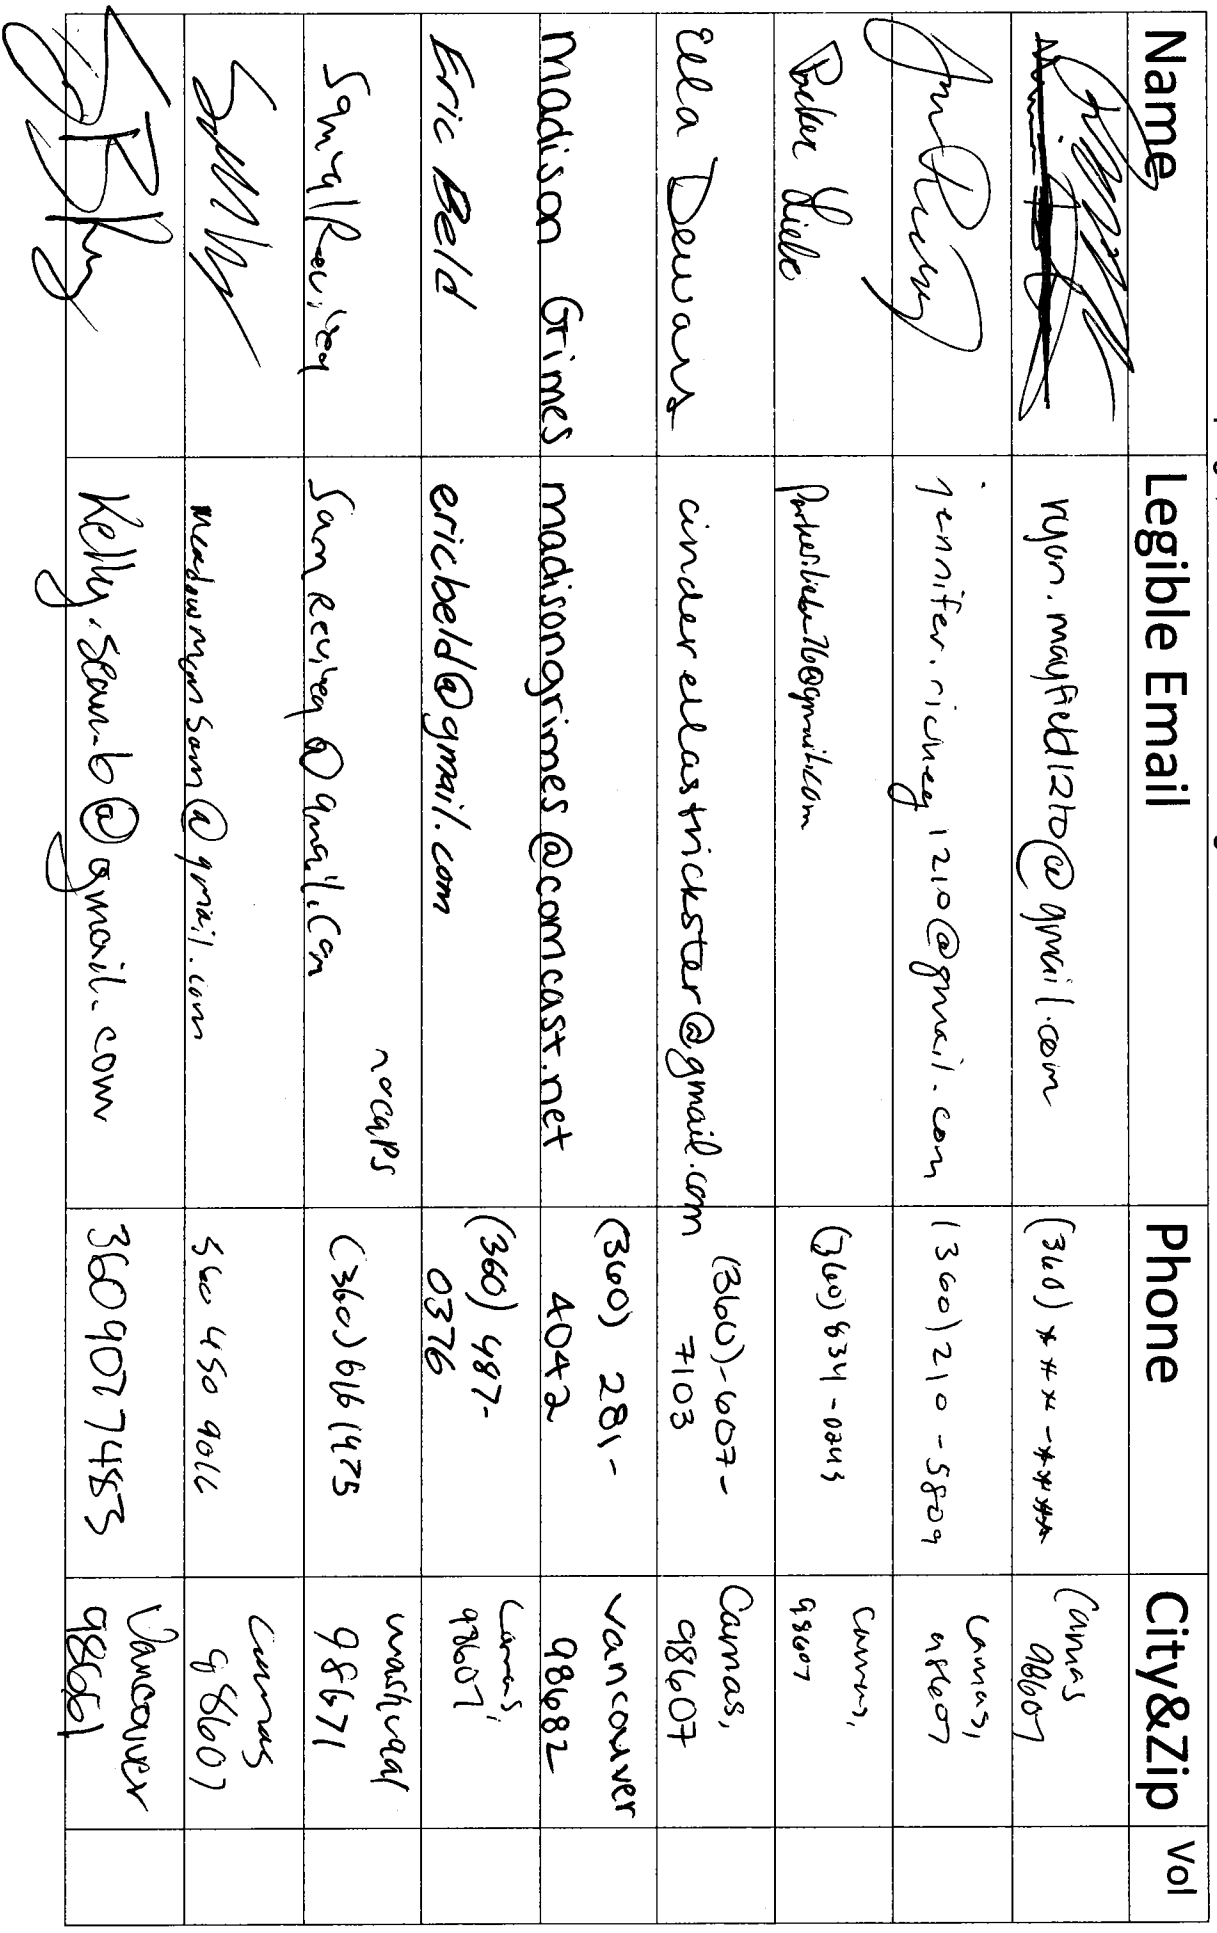 Name Legible Email Phone City&Zip Vol
ryan.mayfield1210@gmail.com (360) ***-**** Camas 98607
jennifer.richey1210@gmail.com (360)210-5809 Camas, 98607
Parker Liebe parkerliebe76@gmail.com (360) 834-0243 Camas, 98607
Ella Dewars cinderellastrickster@gmail.com (360)-607-7103 Camas, 98607
madison Grimes madisongrimes@comcast.net (360) 281-4042 vancouver 98682
Eric Beld ericbeld@gmail.com (360) 487-0376 Camas, 98607
Sam Sam @gmail.com no caps (360) 616 1475 washougal 98671
meadowmansam@gmail.com 360 450 9066 Camas 98607
Kelly.sean.b@gmail.com 360 907 7483 Vancouver 98661